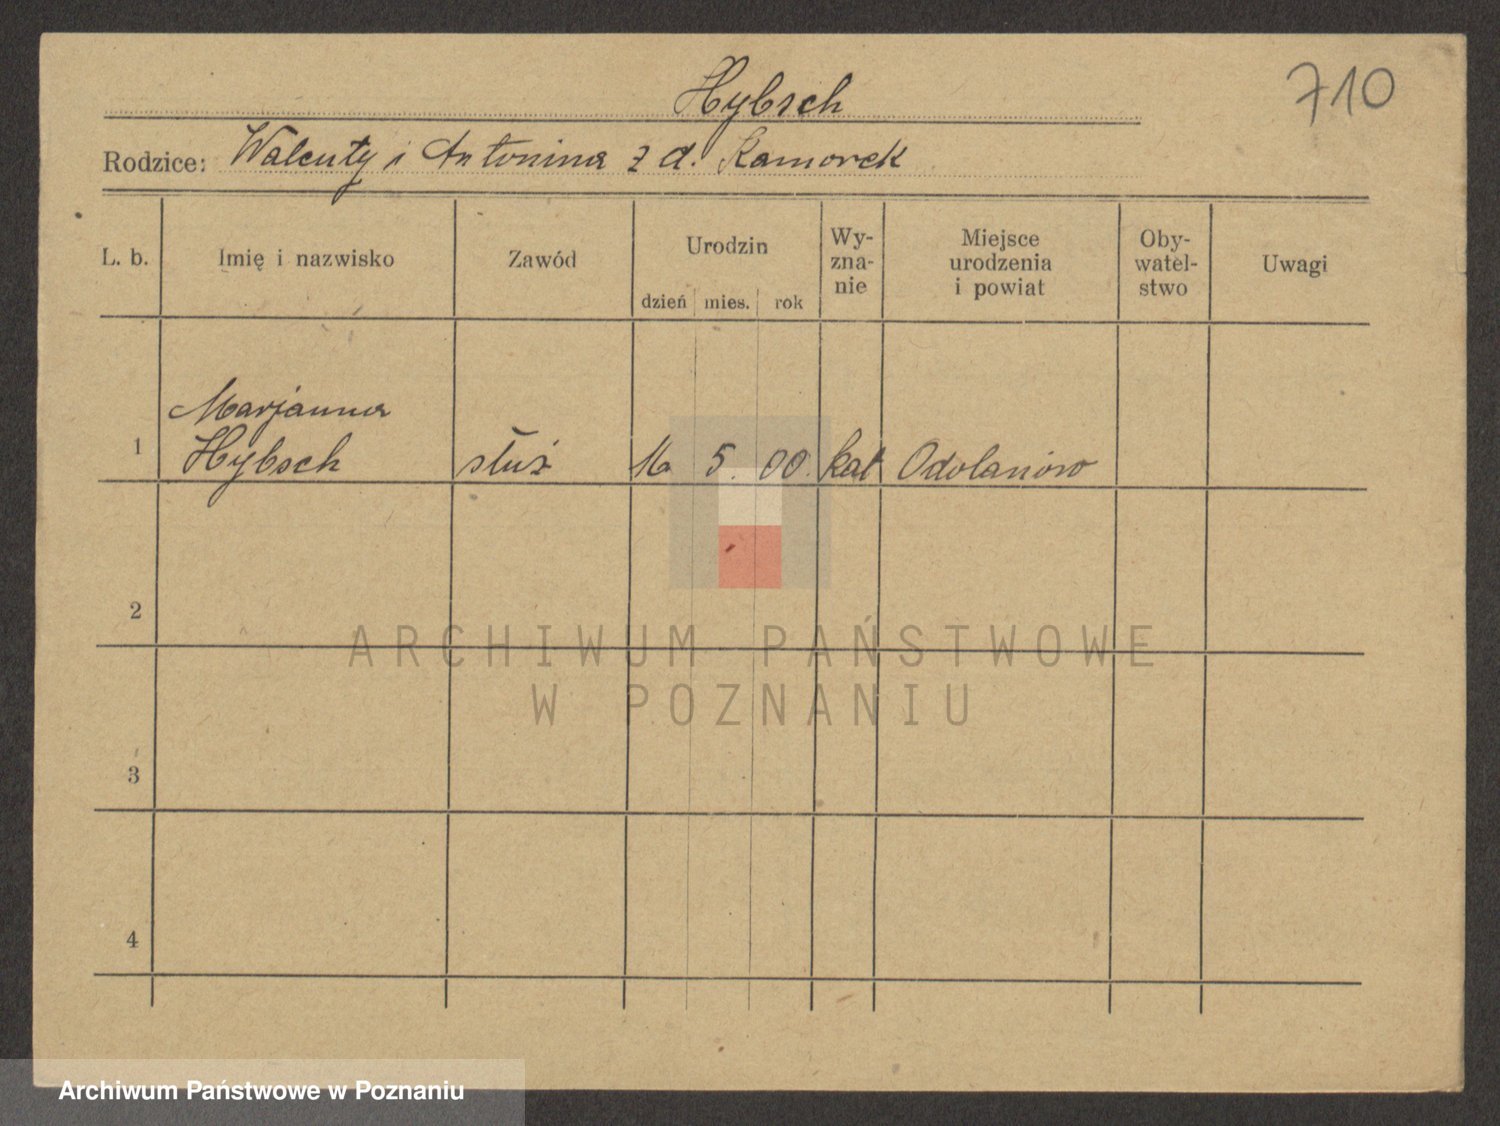 710
Hybsch
Rodzice: Walenty i Antonina z d. Kamorek
L. b.
Imię i nazwisko
Zawód
Urodzin
dzień mies. rok
Wy-
zna-
nie
Miejsce
urodzenia
i powiat
Oby-
watel-
stwo
Uwagi
1
Marjanna
Hybsch
służ
5. 00. kat Odolanów
2
3
4
ARCHIWUM PAŃSTWOWE
W POZNANIU
Archiwum Państwowe w Poznaniu